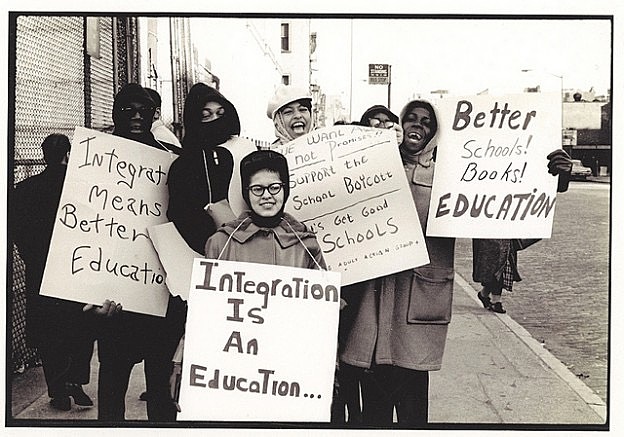 Integrati
Means
Better
Educatio
WE WANT
not Promises!!
Support the
School Boycott
Get Good
Schools
Better
Schools!
Books!
EDUCATION
Integration
Is
An
Education...